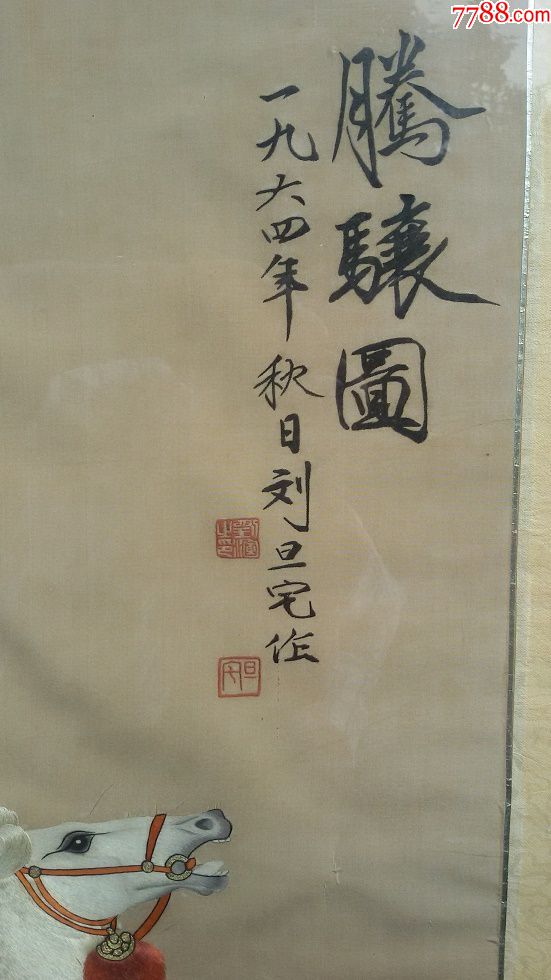 7788.com
騰驤圖
一九六四年秋日刘旦宅作